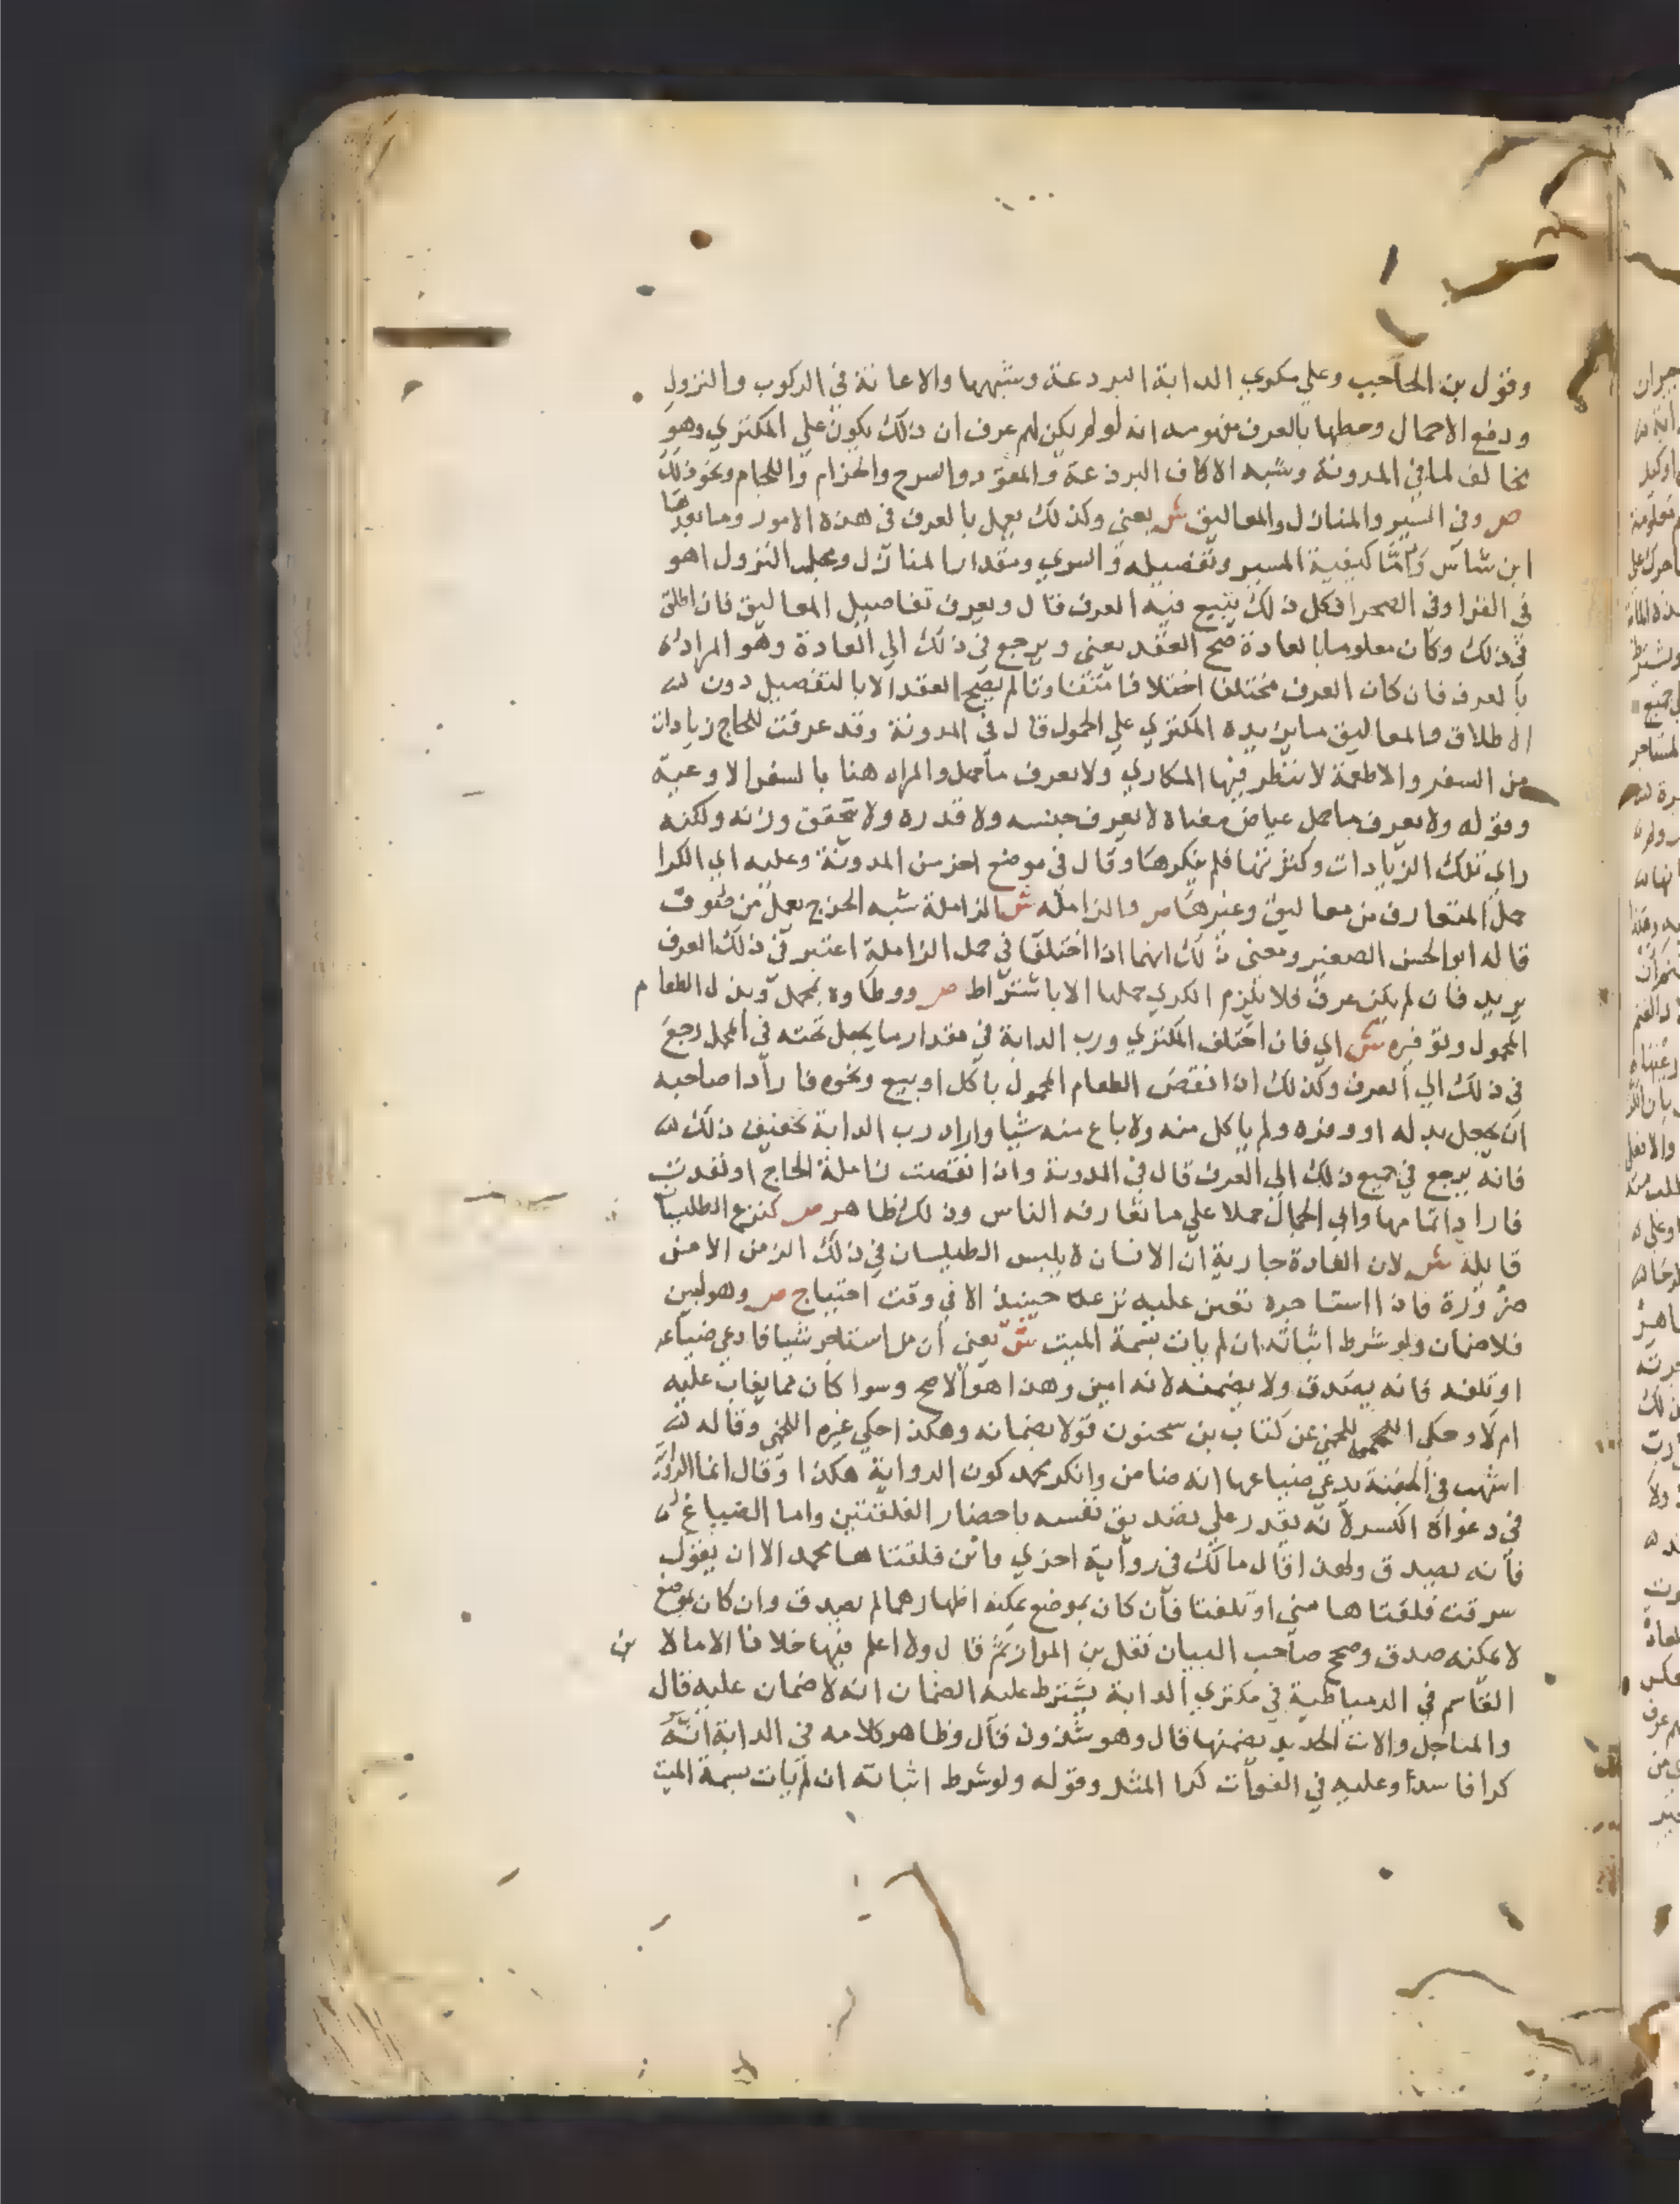 وقول بن الحاجب وعلي مكري الدابة البردعة وشبهها والاعانة في الركوب والنزول
ورفع الاحمال وحطها بالعرف مفهومه انه لو لم يكن لهم عرف ان ذلك يكون علي المكتري وهو
مخالف لما في المدونة وشبه الاكاف البرذعة والمقود والسرج والحزام واللجام ونحو ذلك
ص وفي السير والمنازل والمعاليق ش يعني وكذلك يعمل بالعرف في هذه الامور وما بعدها
ابن شاس واما كيفية المسير وتفصيله والسري ومقدار المنازل ومحل النزول اهو
في القرا وفي الصحرا فكل ذلك يتبع فيه العرف قال ويعرف تفاصيل المعاليق فان اطلق
في ذلك وكان معلوما بالعادة صح العقد يعني ويرجع في ذلك الي العادة وهو المراد
بالعرف فان كان العرف مختلفا اختلافا متفاوتا لم يصح العقد الا بالتفصيل دون
الاطلاق والمعاليق ما يزيده المكتري علي الحمول قال في المدونة وقد عرفت للحاج زيادات
من السفر والاطعمة لا ينظر فيها المكاري ولا يعرف ما حمل والمراد هنا بالسفر الاوعية
وقوله ولا يعرف ما حمل عياض معناه لا يعرف جنسه ولا قدره ولا تحقق وزنه ولكنه
راي تلك الزيادات وكثرتها فلم ينكرها وقال في موضع اخر من المدونة وعليه اي الكرا
حمل المتعارف من معاليق وغيرها ص والزاملة ش الزاملة شبه الخرج يعمل من صوف
قاله ابو الحسن الصغير ومعنى ذلك انهما اذا اختلفا في حمل الزاملة اعتبر في ذلك العرف
يريد فان لم يكن عرف فلا يلزم الكري حملها الا باشتراط ص ووطاوه بمحمل وبذل الطعام
المحمول وتوفيره ش اي فان اختلف المكتري ورب الدابة في مقدار ما يجعل تحته في المحمل رجع
في ذلك الي العرف وكذلك اذا نقص الطعام المحمول باكل او بيع ونحوه فاراد صاحبه
ان يجعل بدله او وفره ولم ياكل منه ولا باع منه شيا واراد رب الدابة تخفيف ذلك
فانه يرجع في جميع ذلك الي العرف قال في المدونة واذا نقصت زاملة الحاج او نفدت
فاراد اتمامها وابي الجمال حملا علي ما تعارفه الناس وذلك ظاهر ص كنزع الطيلسان
قايلة ش لان العادة جارية ان الانسان لا يلبس الطيلسان في ذلك الزمن الا من
ضرورة فاذا استاجره تعين عليه نزعه حينيذ الا في وقت احتياج ص وهو امين
فلا ضمان ولو شرط اثباته ان لم يات بسمة الميت ش يعني ان من استاجر شيا فادعي ضياعه
او تلفه فانه يصدق ولا يضمنه لانه امين وهذا هو الاصح وسوا كان مما يغاب عليه
ام لا وحكي اللخمي عن كتاب بن سحنون قولا بضمانه وهكذا حكي غيره اللخمي وقاله
اشهب في الجفنة يدعي ضياعها انه ضامن وانكر محمد كون الرواية هكذا وقال انما الرواية
في دعواه الكسر لانه يقدر علي تصديق نفسه باحضار الفلقتين واما الضياع
فانه يصدق ولهذا قال مالك في رواية اخري واين فلقتاها محمد الا ان يقول
سرقت فلقتاها مني او تلفتا فان كان بموضع يمكنه اظهارهما لم يصدق وان كان بموضع
لا يمكنه صدق وصحح صاحب البيان نقل بن المواز ثم قال ولا اعلم فيها خلافا الا ما لا بن
القاسم في الدمياطية في مكتري الدابة يشترط عليه الضمان انه لا ضمان عليه قال
والمناجل والات الحديد يضمنها قال وهو شذوذ قال وظاهر كلامه في الدابة انه
كرا فاسدا وعليه في الفوات كرا المثل وقوله ولو شرط اثباته ان لم يات بسمة الميت